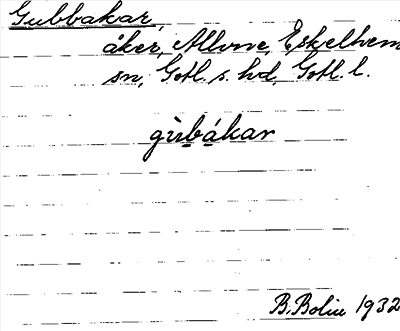 Gubbakar,
åker, Allvne, Eskelhem
sn, Gotl. s. hd, Gotl. l.
gùbákar
B. Bolin 1932